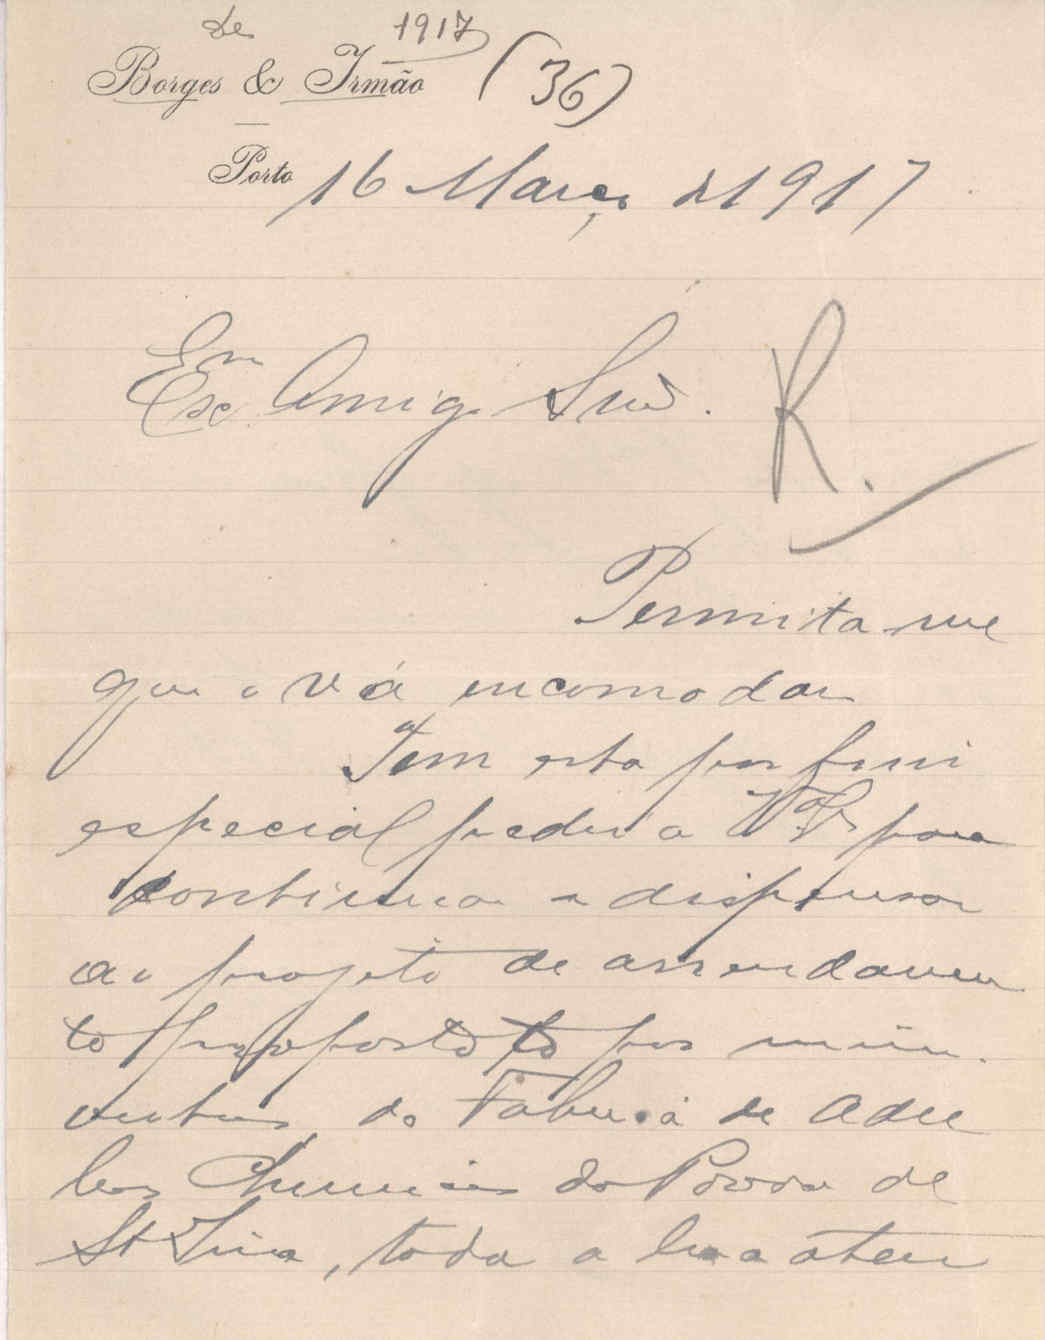 de 1917
Borges & Irmão (36)
Porto 16 Março de 1917
Exmo Amigo e Snr.
R.
Permita-me
que o vá encomodar
Tem esta por fim
especial pedir a V. para
continuar a dispensar
ao projeto de arrendamen
to proposto por mim
do Fabrica de Adu
bos Chimicos da Povoa de
Sta Iria, toda a boa aten